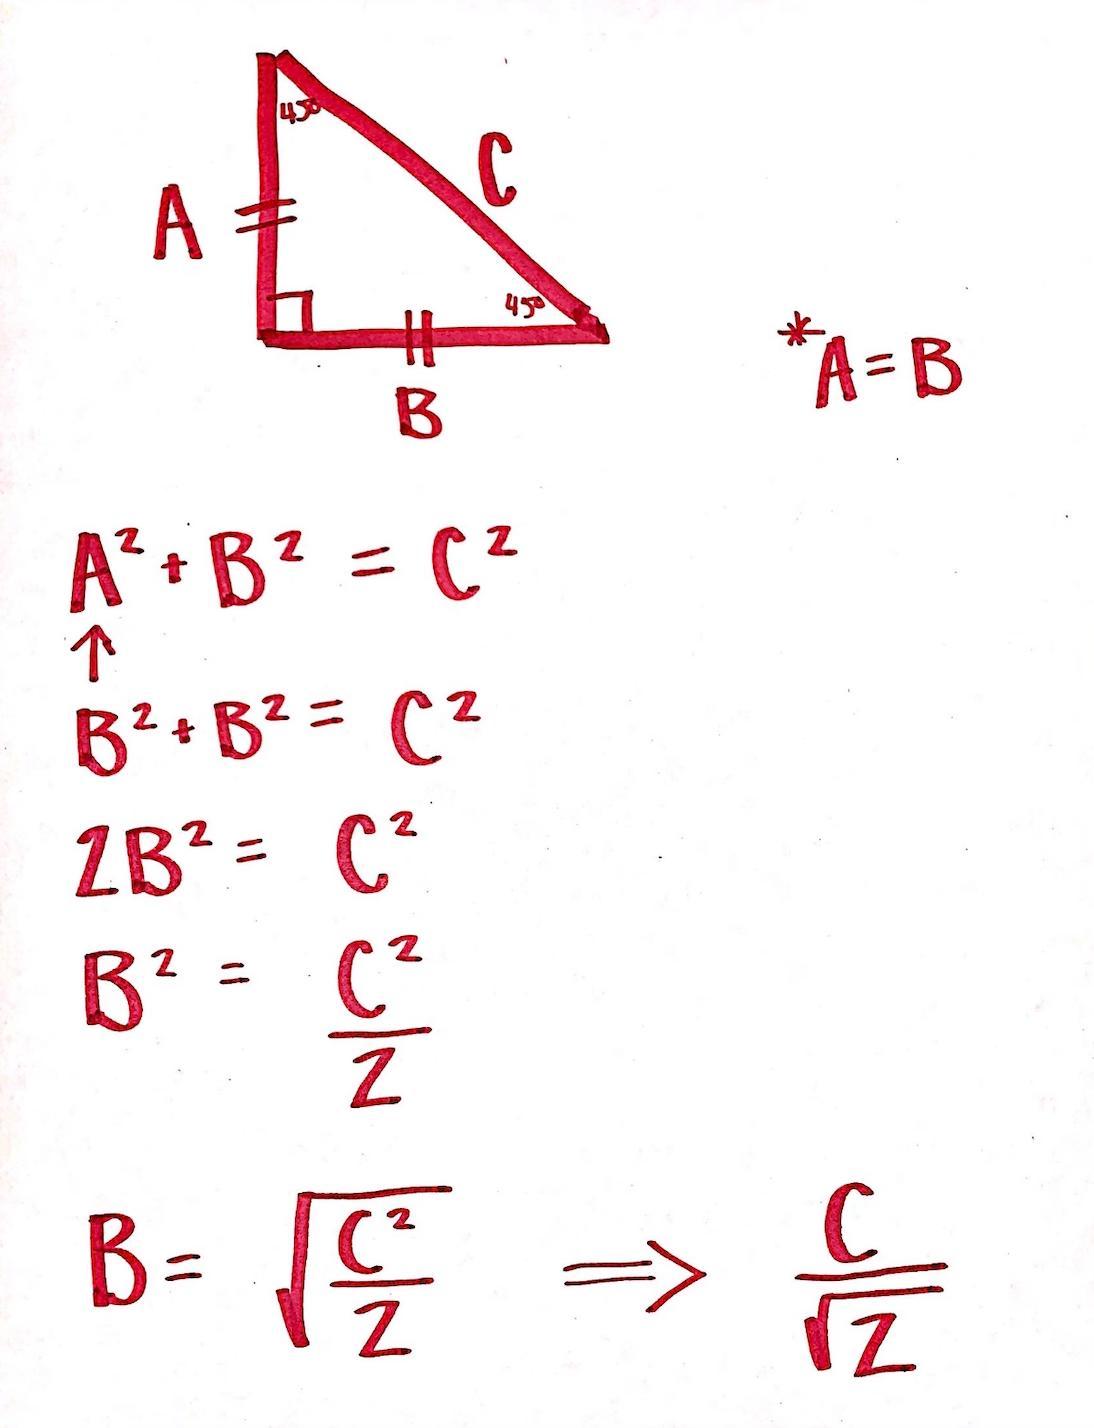 45°
C
A
45°
B
*A = B
A² + B² = C²
↑
B² + B² = C²
2B² = C²
B² = C²/2
B = √(C²/2) ⟹ C/√2